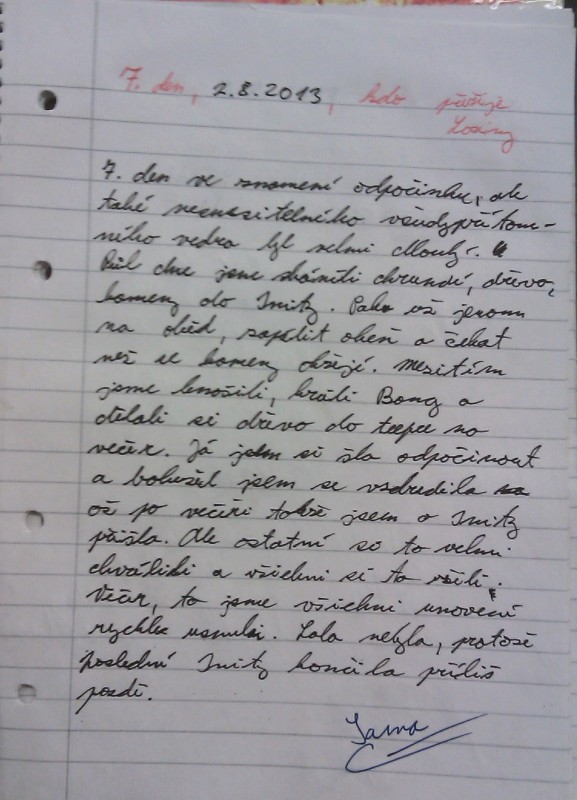 7. den, 2.8.2013, kdo přežije
Losiny
7. den ve znamení odpočinku, ale
také nesnesitelného všudypřítom-
ného vedra byl velmi dlouhý.
Půl dne jsme sháněli chrundí, dřevo,
kameny do Initz. Pak už jenom
na oběd, zapálit oheň a čekat
než se kameny ohřejí. Mezitím
jsme lenošili, hráli Bang a
dělali si dřevo do teepee na
večer. Já jsem si šla odpočinout
a bohužel jsem se vzbudila
až po večeři takže jsem o Initz
přišla. Ale ostatní si to velmi
chválili a všichni si to užili.
Večer, to jsme všichni unavení
rychle usnuli. Lala nebyla, protože
poslední Initz končila příliš
pozdě.
Jana